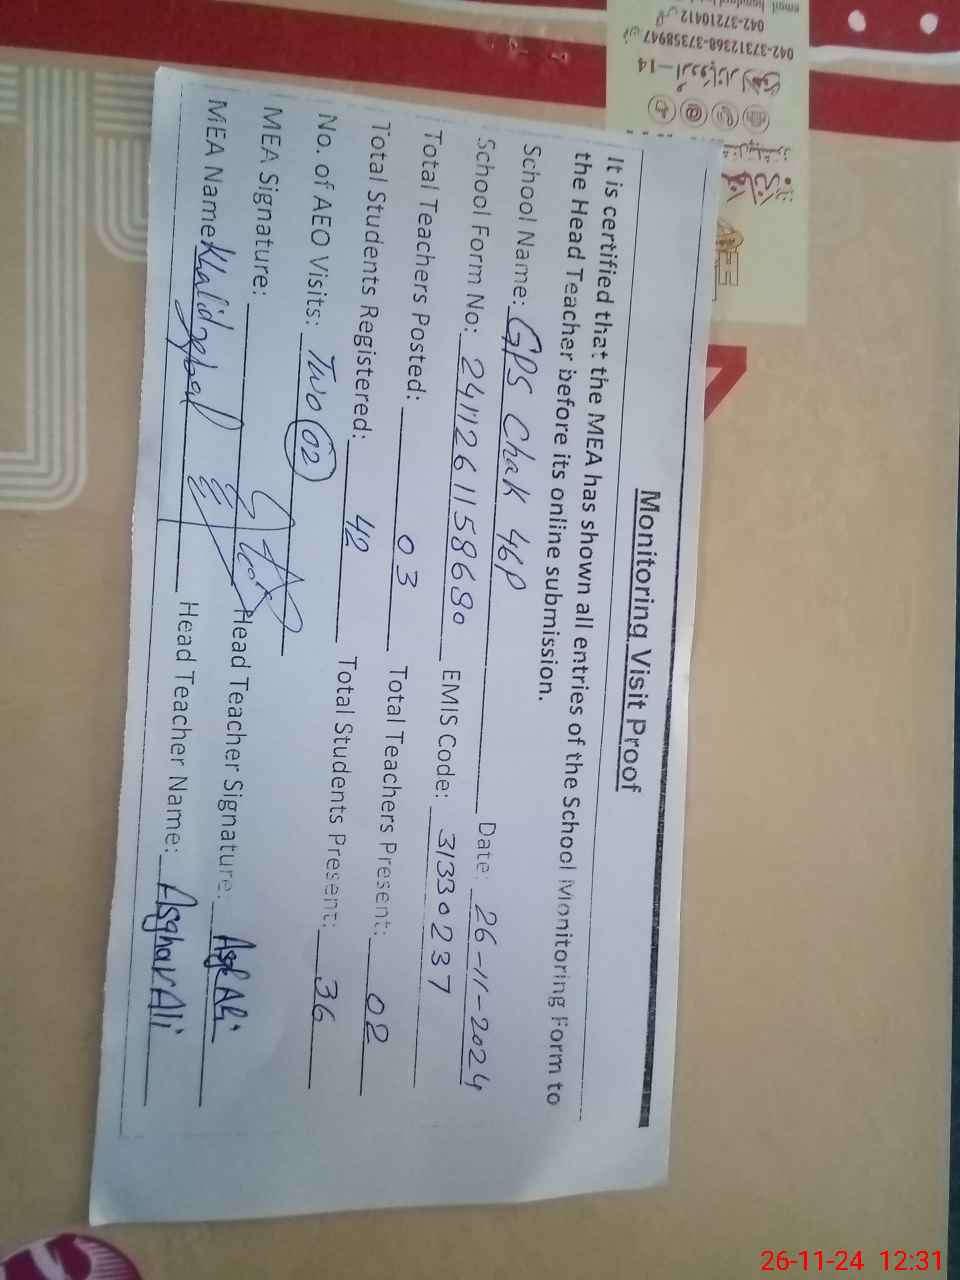 Monitoring Visit Proof
It is certified that the MEA has shown all entries of the School Monitoring Form to
the Head Teacher before its online submission.
School Name: GPS Chak 46P Date: 26-11-2024
School Form No: 2411261158680 EMIS Code: 31330237
Total Teachers Posted: 03 Total Teachers Present: 02
Total Students Registered: 42 Total Students Present: 36
No. of AEO Visits: Two 02
MEA Signature: Head Teacher Signature: Asg Ali
MEA Name: Khalid Iqbal Head Teacher Name: Asghar Ali
042-37312368-37358947
042-37210412
26-11-24 12:31